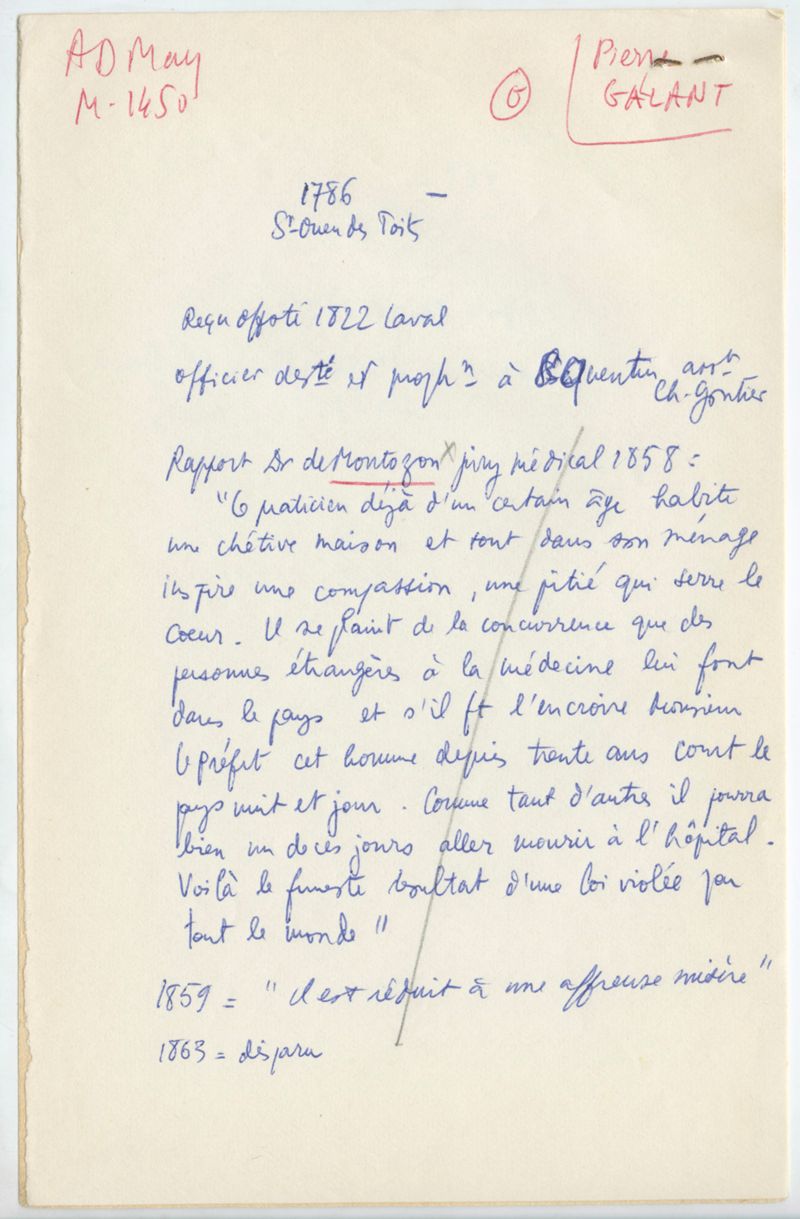 AD May
M-1450
G
Pierre
GALANT
1786 –
St-Ouen des Toits
Reçu offoté 1822 Laval
officier de sté et
à St Quentin arrt
Ch-Gontier
Rapport Dr de Montozon x jury médical 1858 =
"Ce praticien déjà d'un certain âge habite
une chétive maison et tout dans son ménage
inspire une compassion, une pitié qui serre le
coeur. Il se plaint de la concurrence que des
personnes étrangères à la médecine lui font
dans le pays et s'il ft l'en croire Monsieur
le préfet cet homme depuis trente ans court le
pays nuit et jour. Comme tant d'autres il pourra
bien un de ces jours aller mourir à l'hôpital.
Voilà le funeste résultat d'une loi violée par
tout le monde"
1859 = "il est réduit à une affreuse misère"
1863 = disparu